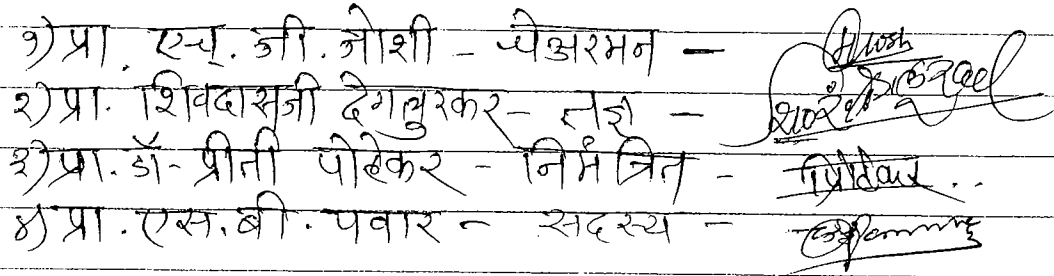 १) प्रा. एच. जी. जोशी - चेअरमन -
२) प्रा. शिवदासजी देगलुरकर - तज्ञ -
३) प्रा. डॉ - प्रीती पोहेकर - निमंत्रित -
४) प्रा. एस. बी. पवार - सदस्य -